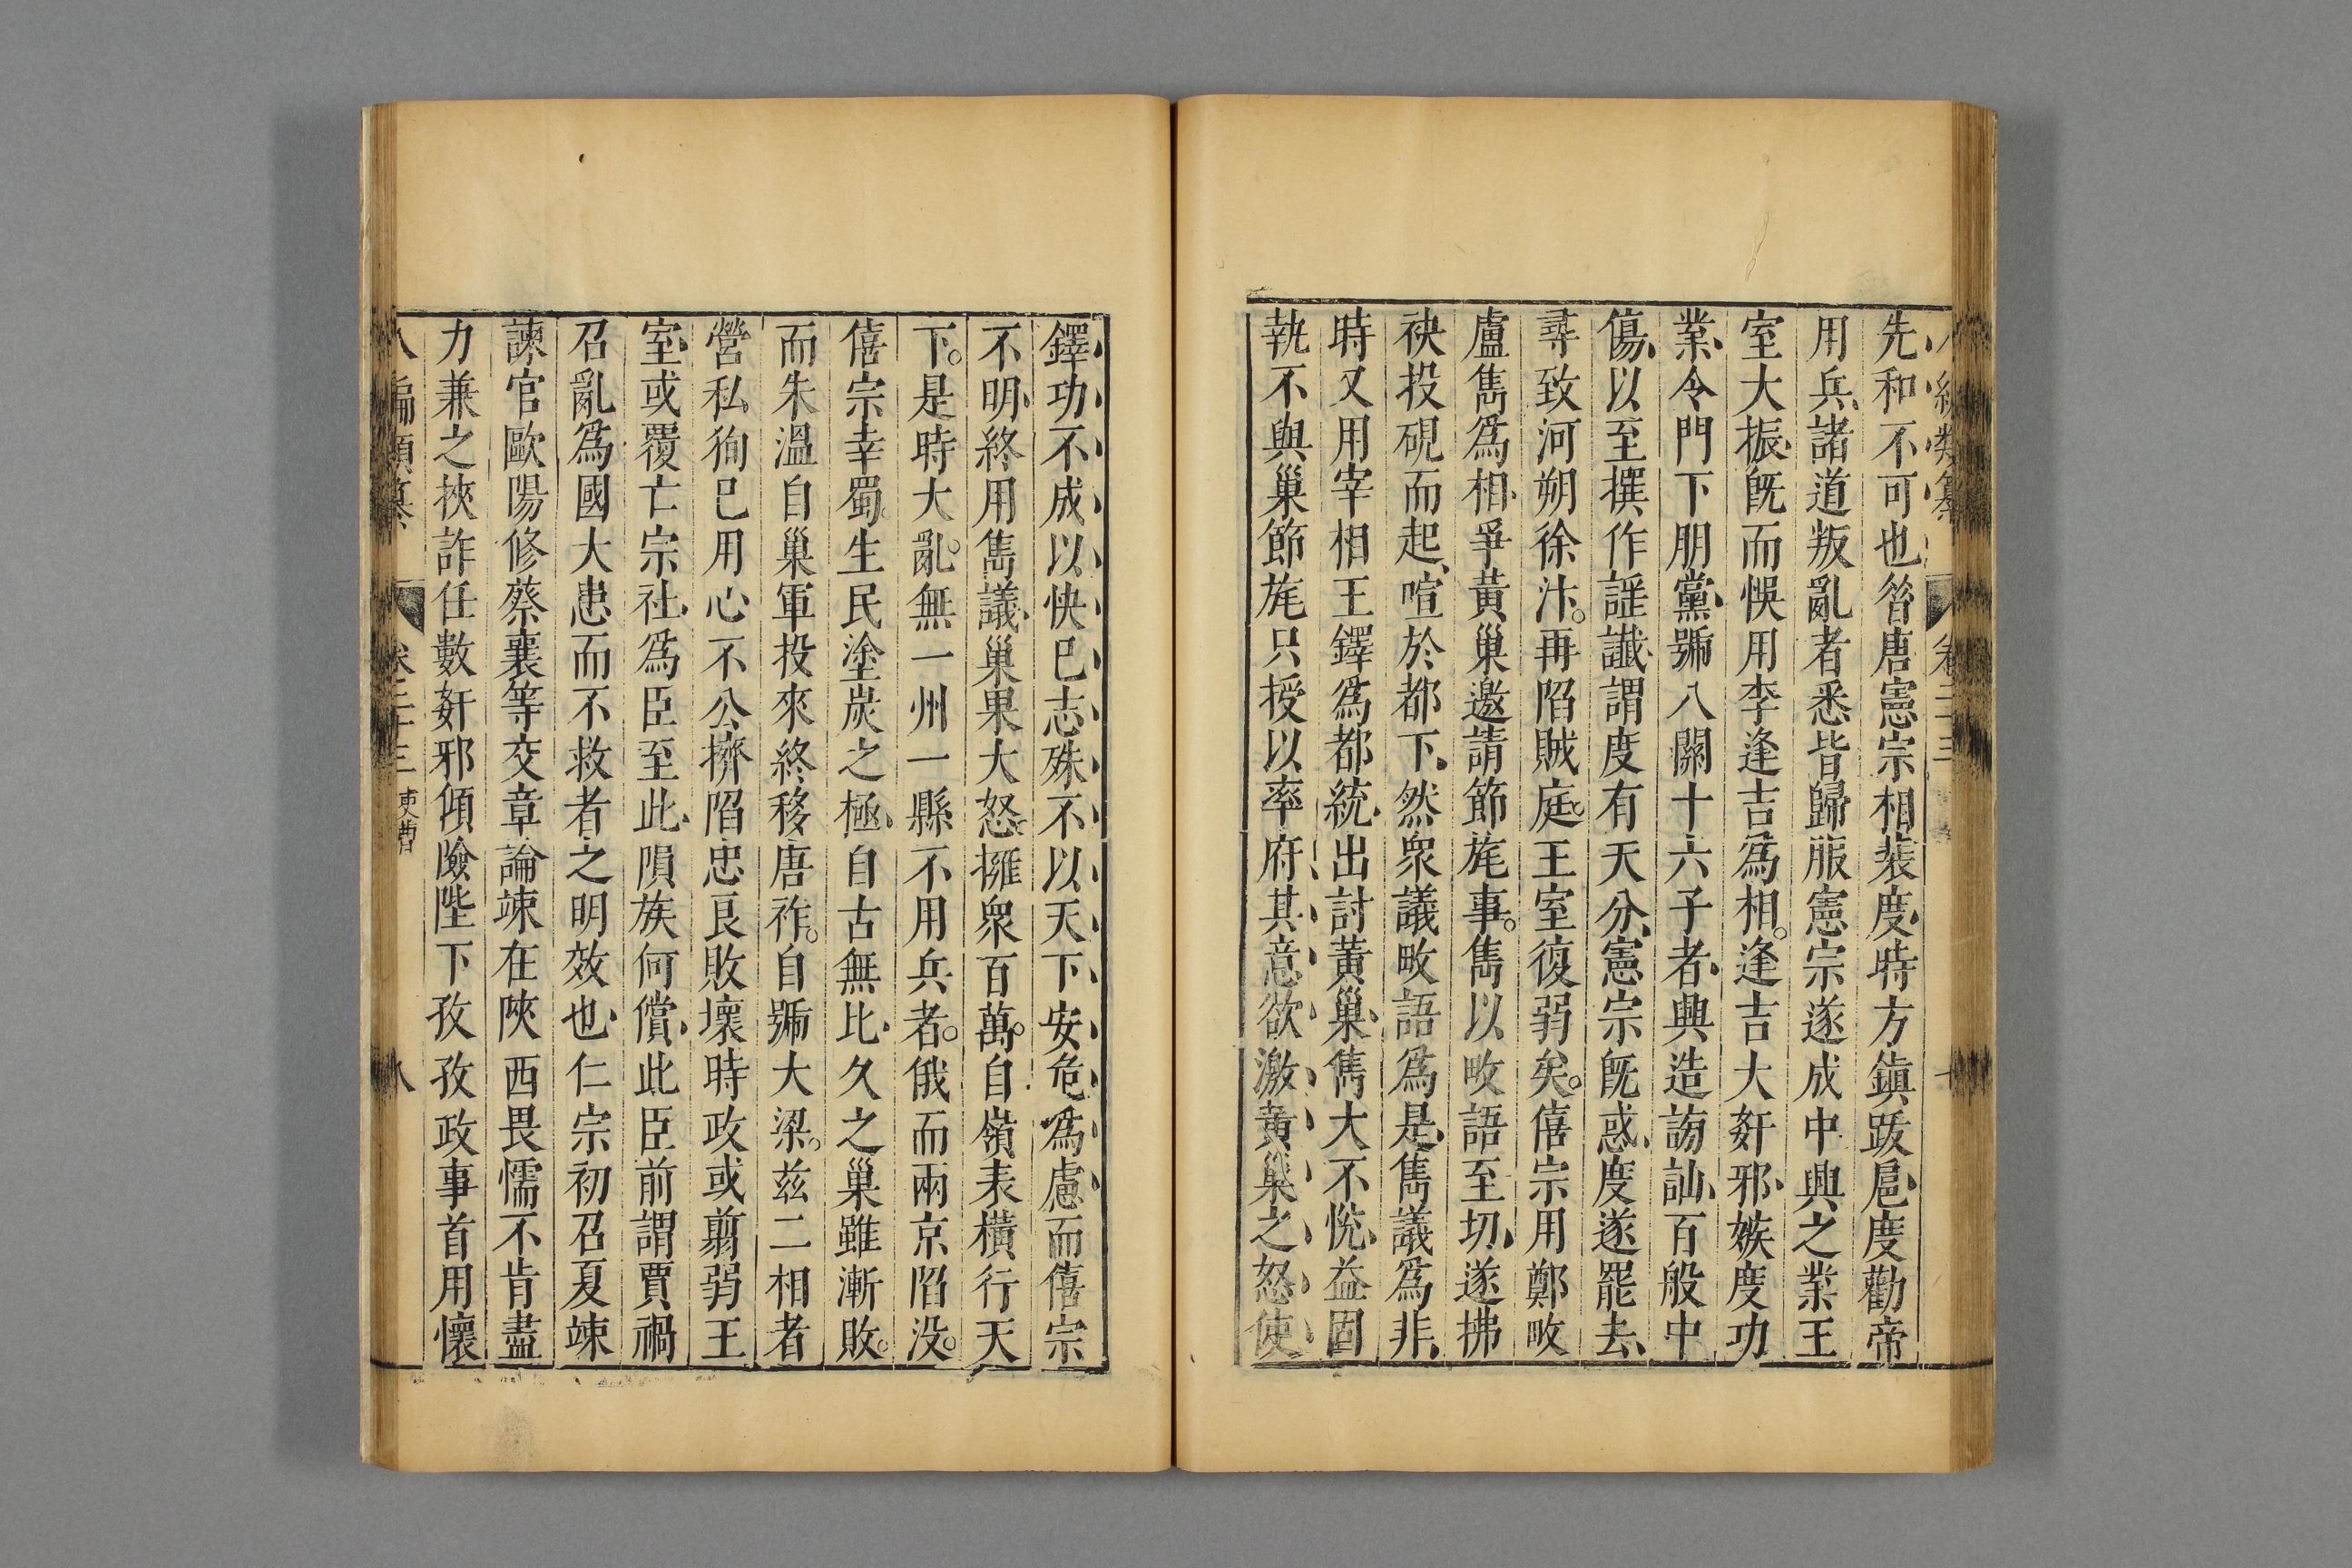 先和不可也昝唐憲宗相裴度時方鎮跋扈度勸帝
用兵諸道叛亂者悉皆歸服憲宗遂成中興之業王
室大振旣而悞用李逢吉爲相逢吉大奸邪嫉度功
業令門下朋黨號八關十六子者興造謗訕百般中
傷以至撰作謡讖謂度有天分憲宗旣惑度遂罷去
尋致河朔徐汴再陷賊庭王室復弱矣僖宗用鄭畋
盧雋爲相爭黃巢邀請節旄事雋以畋語至切遂拂
袂投硯而起喧於都下然衆議畋語爲是雋議爲非
時又用宰相王鐸爲都統出討黃巢雋大不悅益固
執不與巢節旄只授以率府其意欲激黃巢之怒使
鐸功不成以快巳志殊不以天下安危爲慮而僖宗
不明終用雋議巢果大怒擁衆百萬自嶺表橫行天
下是時大亂無一州一縣不用兵者俄而兩京陷没
僖宗幸蜀生民塗炭之極自古無比久之巢雖漸敗
而朱溫自巢軍投來終移唐祚自號大梁兹二相者
營私狥巳用心不公擠陷忠良敗壞時政或翦弱王
室或覆亡宗社爲臣至此隕族何償此臣前謂賈禍
召亂爲國大患而不救者之明效也仁宗初召夏竦
諫官歐陽修蔡襄等交章論竦在陝西畏懦不肯盡
力兼之挾詐任數奸邪傾險陛下孜孜政事首用懷
八編類纂 卷二十三 吏曹 八